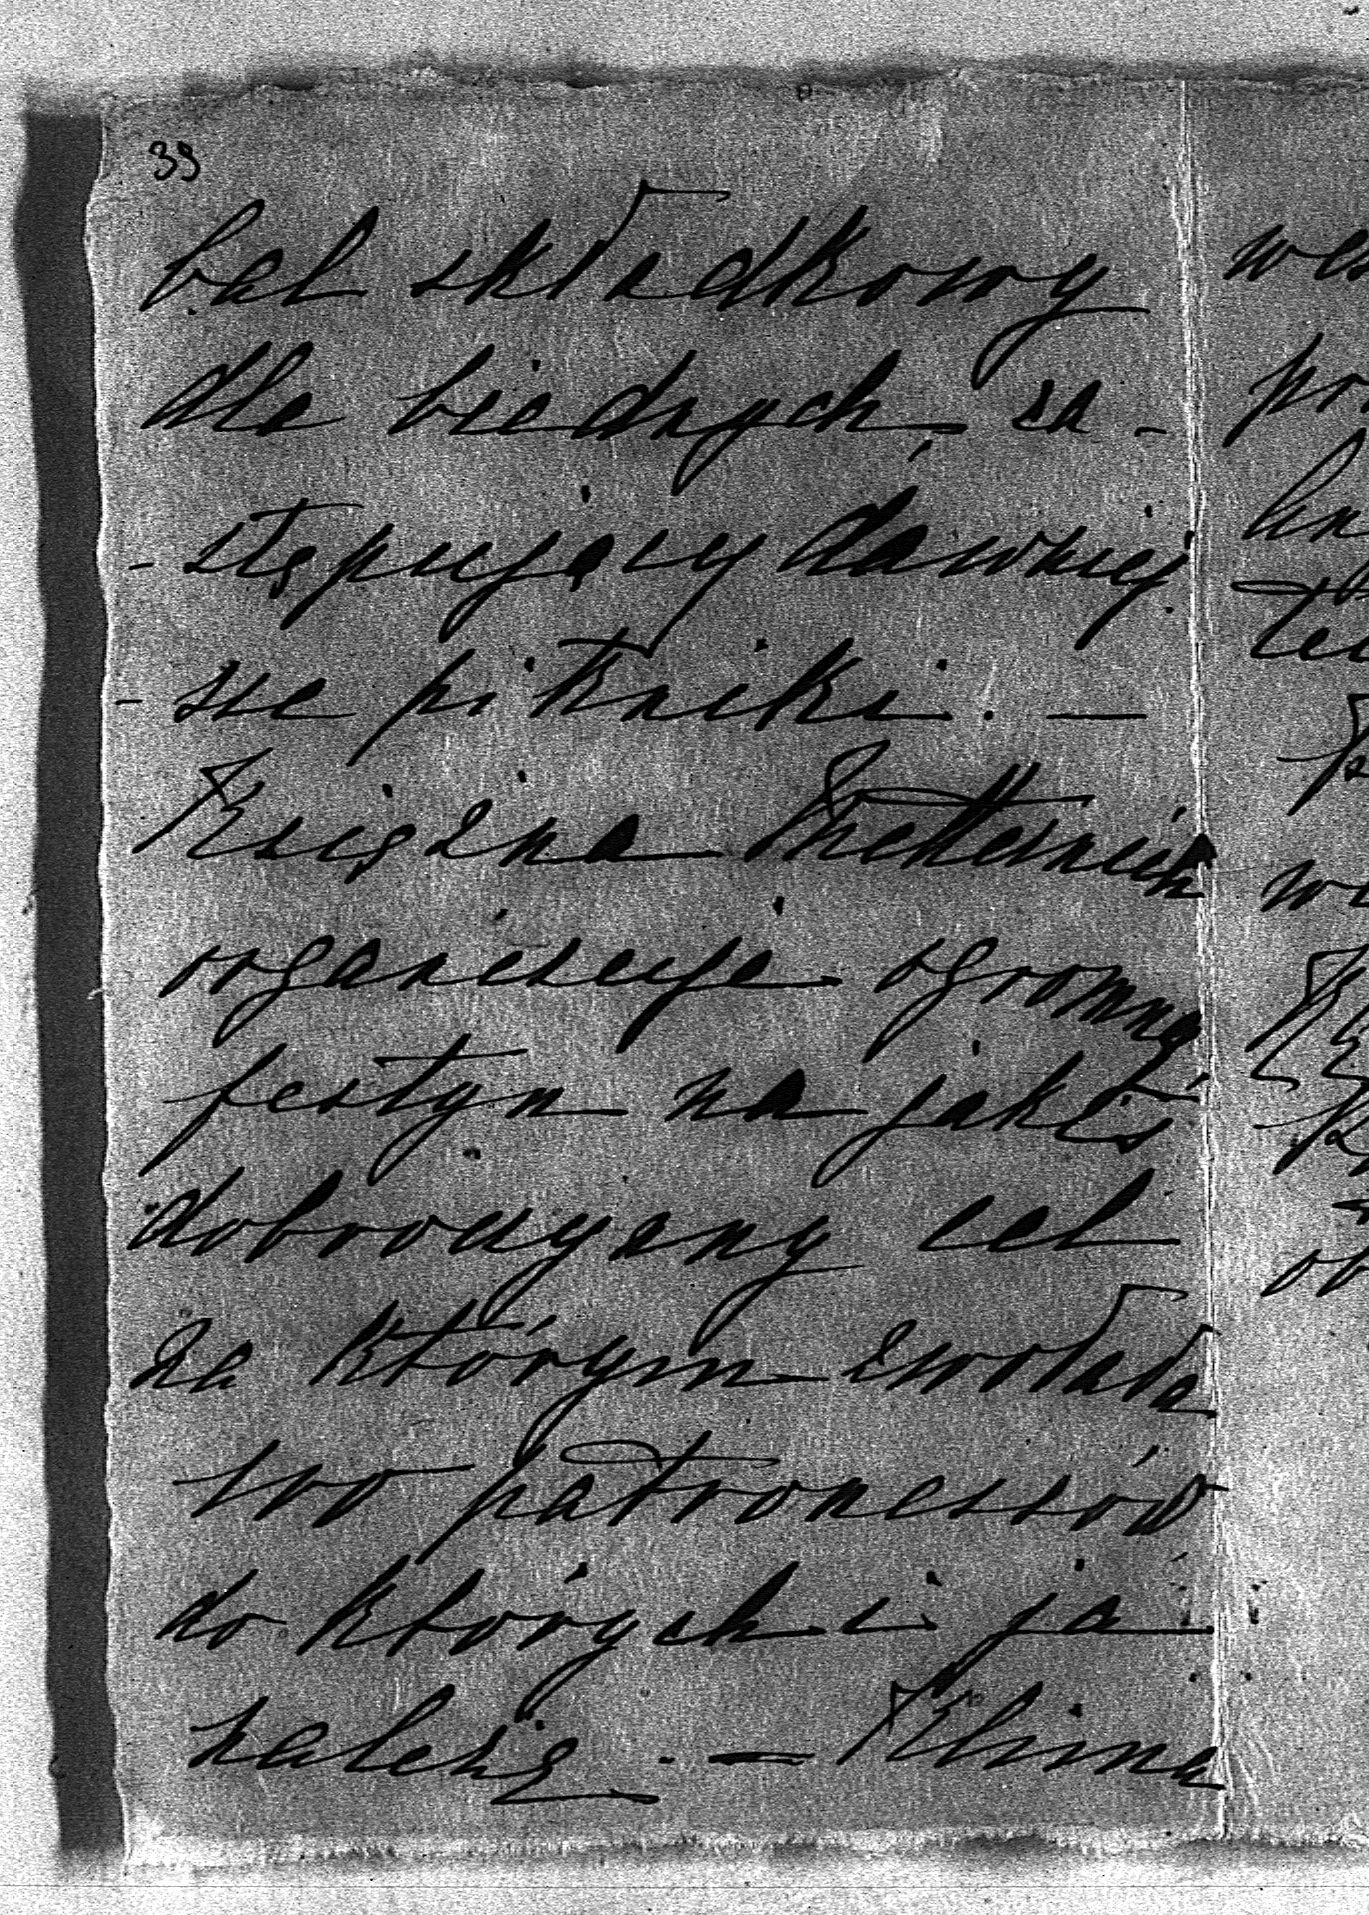 39
bal składkowy
dla biednych, za-
-stępujący dawniej-
-sze pikniki. —
Księżna Metternich
organizuje ogromny
festyn na jakiś
dobroczynny cel
za którym zwołała
100 patronessów
do których i ja
należę. — Klima